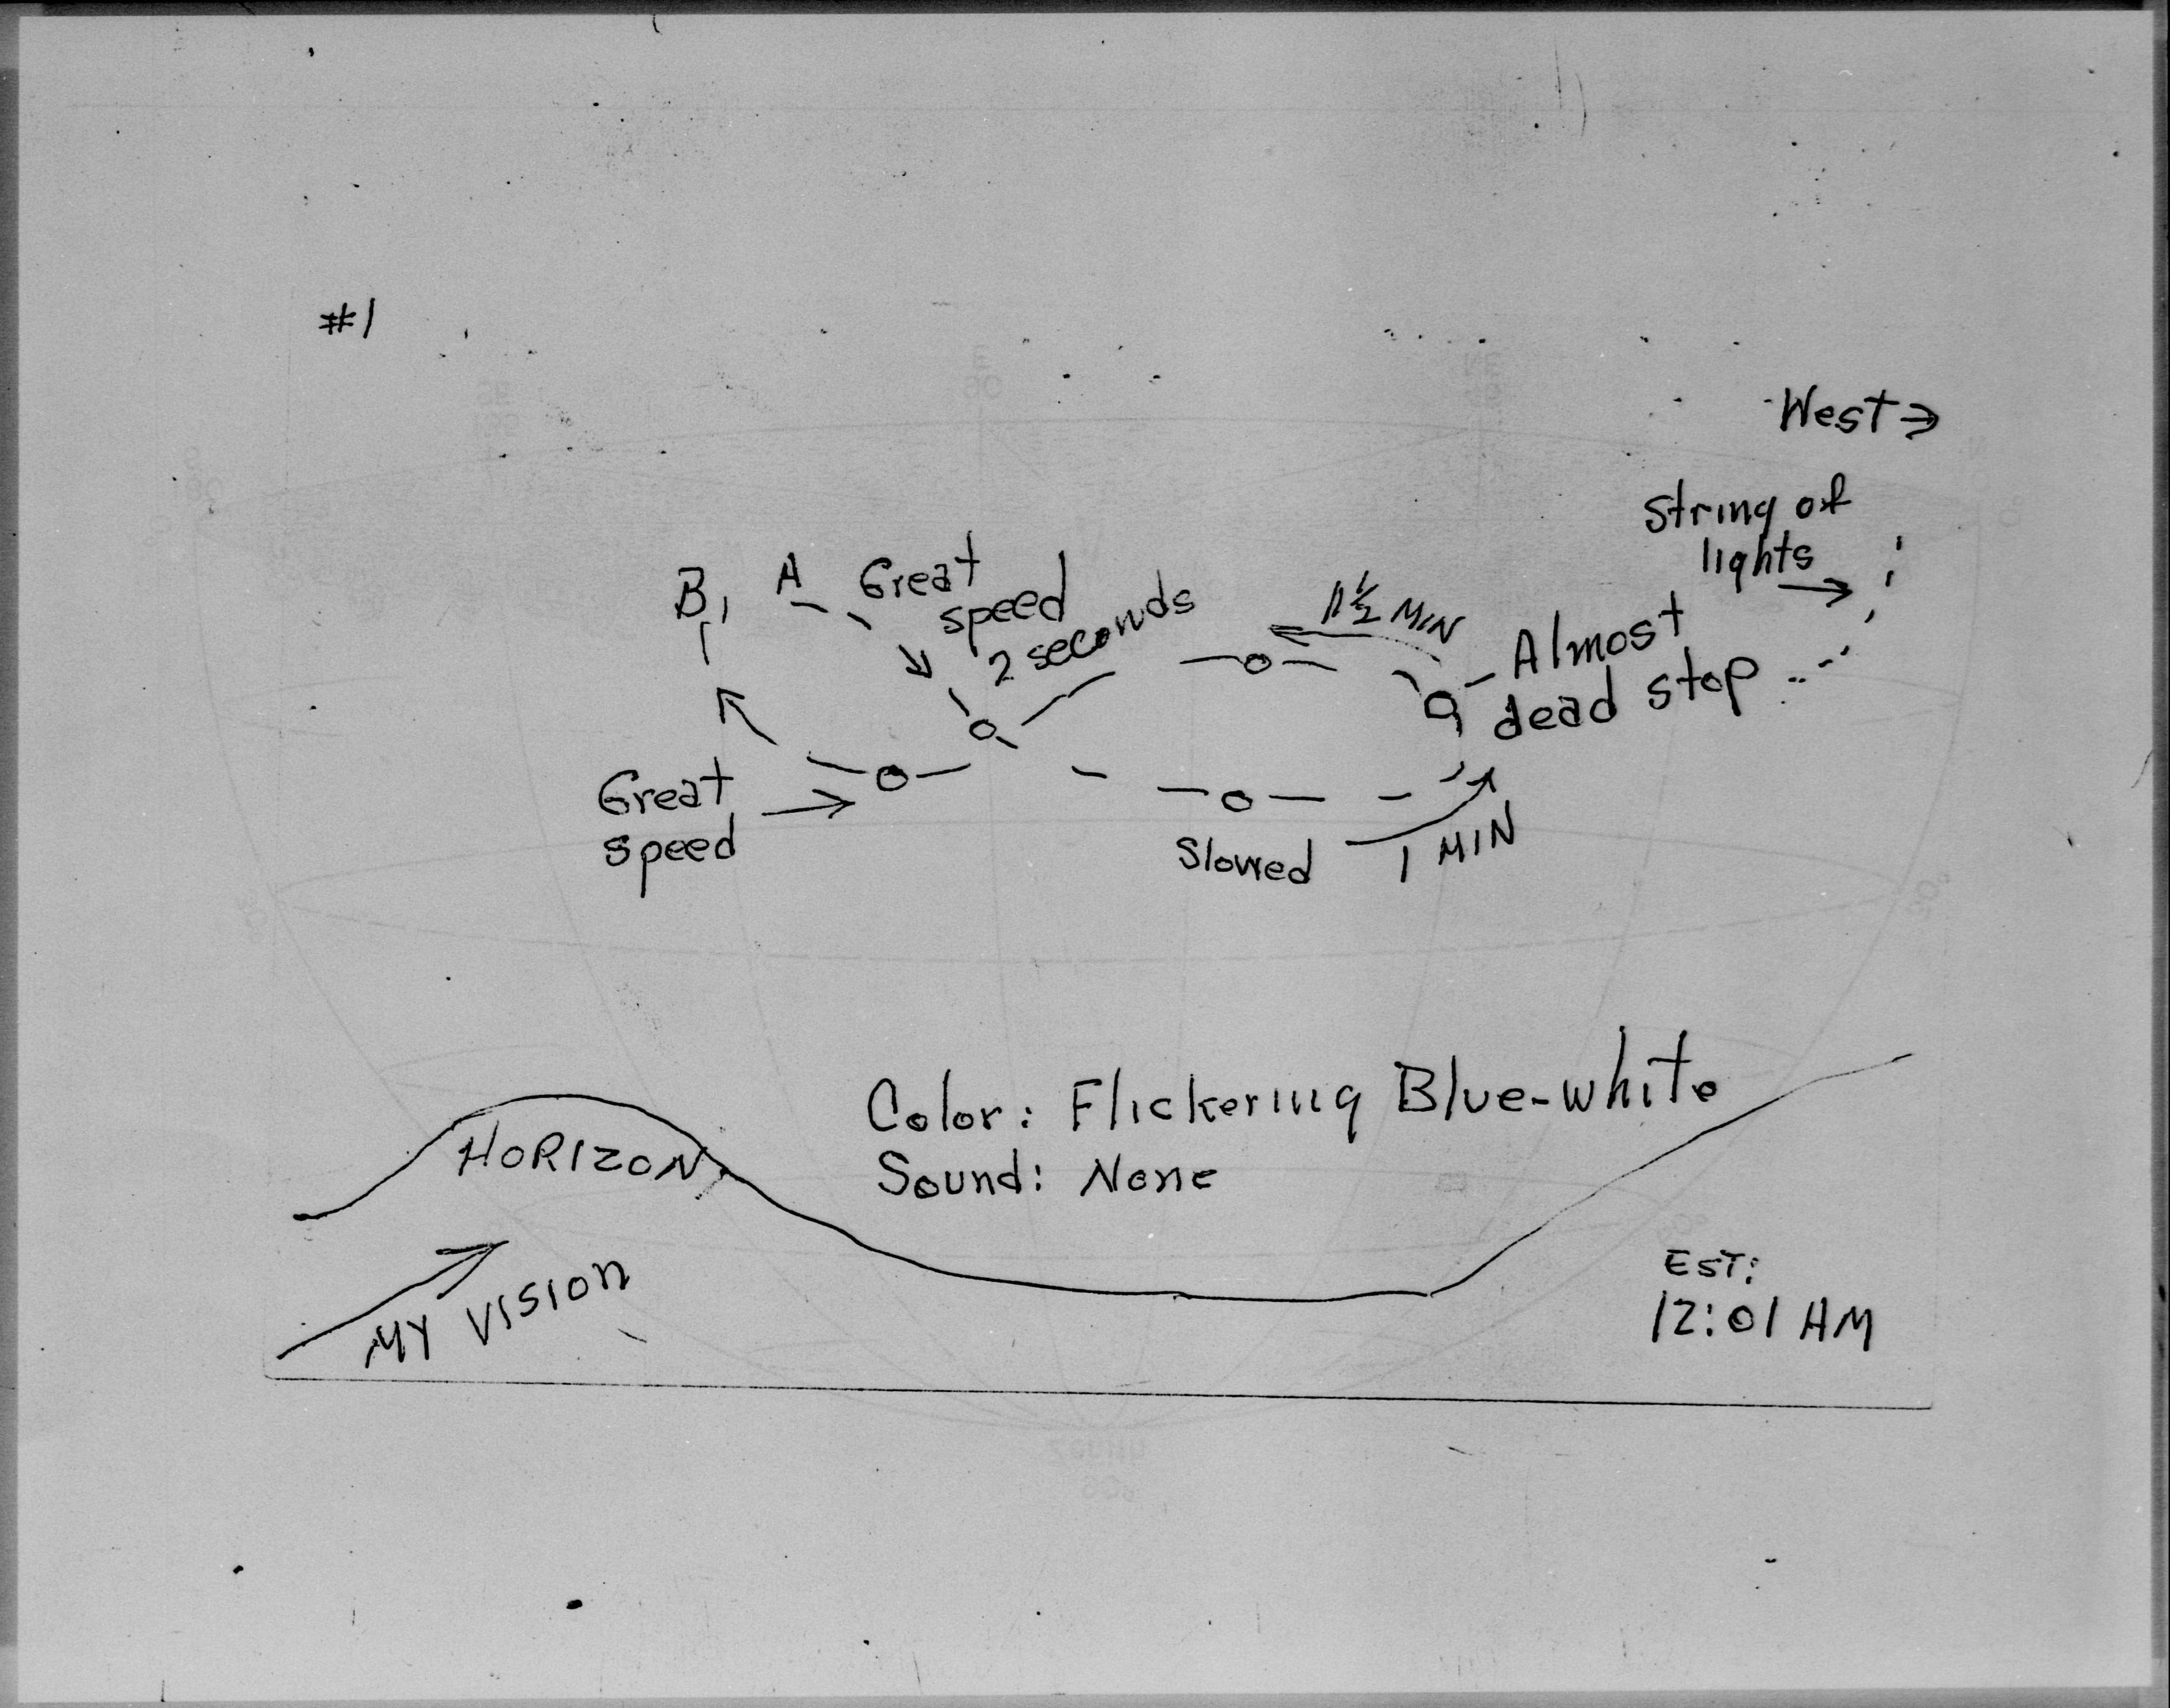 #1
West →
String of
lights →
B
A
Great
speed
2 seconds
1 1/2 MIN
Almost
dead stop
Great
speed →
Slowed
1 MIN
Color: Flickering Blue-white
Sound: None
HORIZON
MY VISION
EST:
12:01 AM
E
90
Zenith